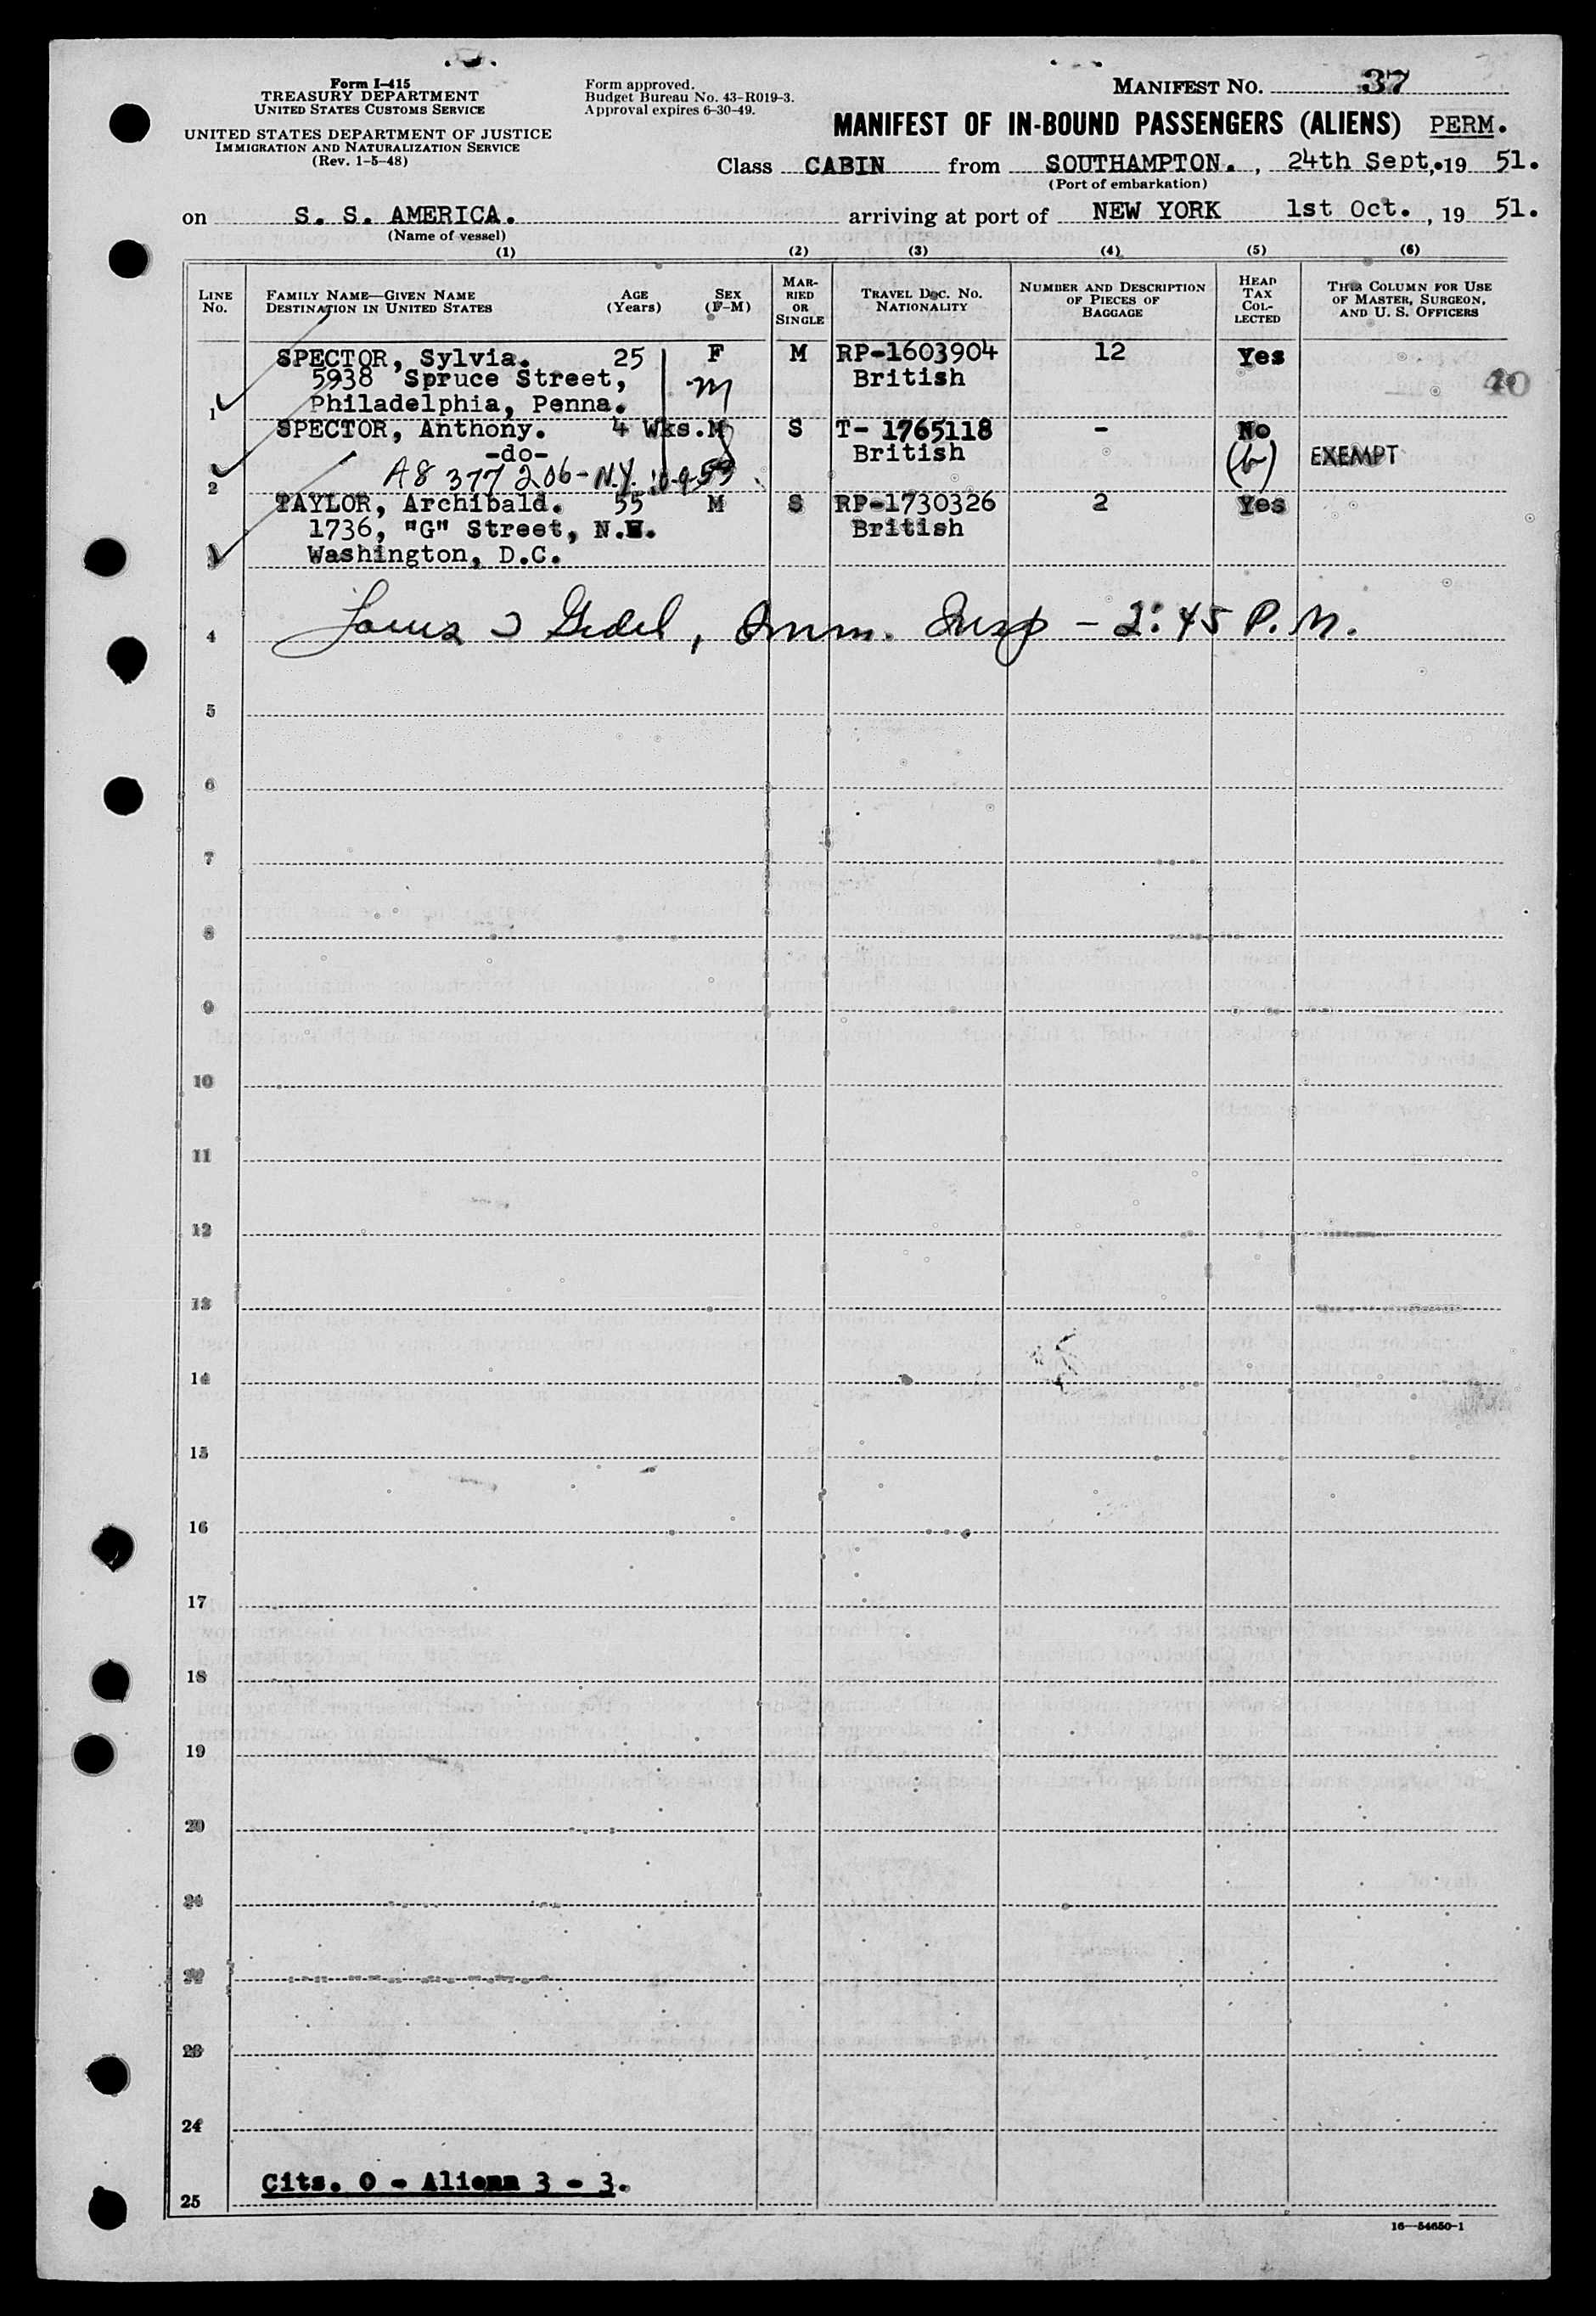 Form I-415
TREASURY DEPARTMENT
UNITED STATES CUSTOMS SERVICE
UNITED STATES DEPARTMENT OF JUSTICE
IMMIGRATION AND NATURALIZATION SERVICE
(Rev. 1-5-48)
Form approved.
Budget Bureau No. 43-R019-3.
Approval expires 6-30-49.
MANIFEST NO. 37
MANIFEST OF IN-BOUND PASSENGERS (ALIENS) PERM.
Class CABIN from SOUTHAMPTON. , 24th Sept, 19 51.
(Port of embarkation)
on S. S. AMERICA. arriving at port of NEW YORK 1st Oct. , 19 51.
(Name of vessel)
(1) (2) (3) (4) (5) (6)
LINE No. FAMILY NAME—GIVEN NAME DESTINATION IN UNITED STATES AGE (Years) SEX (F-M) MARRIED OR SINGLE TRAVEL DOC. NO. NATIONALITY NUMBER AND DESCRIPTION OF PIECES OF BAGGAGE HEAD TAX COLLECTED THIS COLUMN FOR USE OF MASTER, SURGEON, AND U. S. OFFICERS
SPECTOR, Sylvia. 25 F M RP-1603904 12 Yes
5938 Spruce Street, m British
1 Philadelphia, Penna.
SPECTOR, Anthony. 4 Wks. M S T- 1765118 - No
-do- British (b) EXEMPT
2 A8 377 206 - N.Y. 10-9-53
TAYLOR, Archibald. 55 M S RP-1730326 2 Yes
1736, "G" Street, N.W. British
3 Washington, D.C.
4 Imm. Insp - 2:45 P.M.
5
6
7
8
9
10
11
12
13
14
15
16
17
18
19
20
21
22
23
24
Cits. 0 - Aliens 3 - 3.
25
16—54650-1